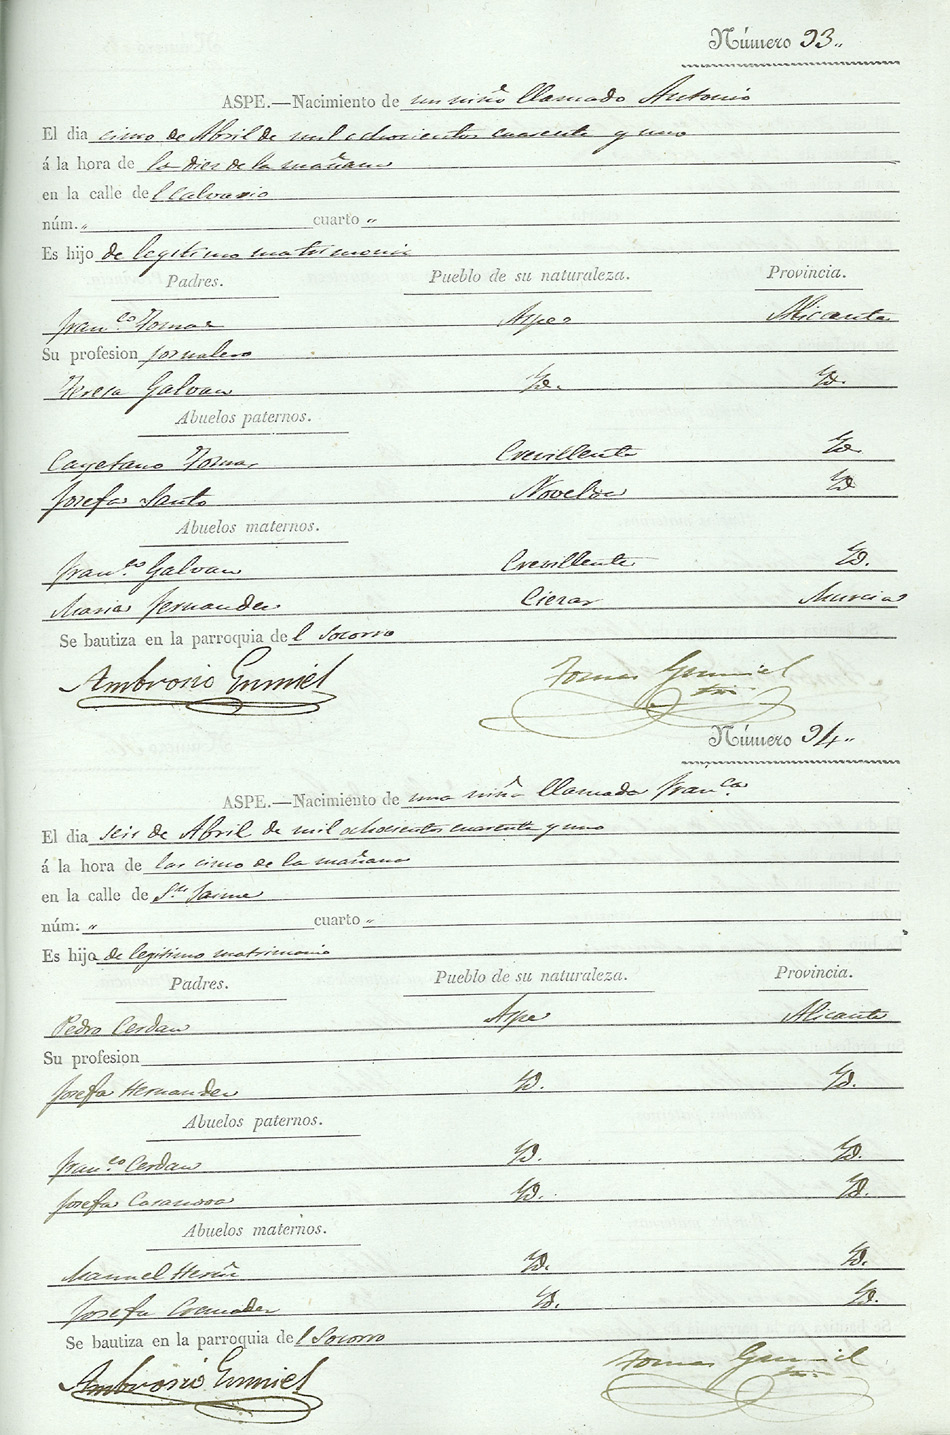 Número 93..
ASPE.—Nacimiento de un niño llamado Antonio
El dia cinco de Abril de mil ochocientos cuarenta y uno
á la hora de la diez de la mañana
en la calle del Calvario
núm. „ cuarto „
Es hijo de legitimo matrimonio
Padres. Pueblo de su naturaleza. Provincia.
Fran.co Tomas Aspe Alicante
Su profesion jornalero
Teresa Galvan Yd. Yd.
Abuelos paternos.
Cayetano Tomas Crevillente Yd
Josefa Santo Novelda Yd
Abuelos maternos.
Fran.co Galvan Crevillente Yd.
Maria Fernandez Cieza Murcia
Se bautiza en la parroquia del Socorro
Ambrosio Gumiel Tomas Gumiel
Número 94..
ASPE.—Nacimiento de una niña llamada Fran.ca
El dia seis de Abril de mil ochocientos cuarenta y uno
á la hora de las cinco de la mañana
en la calle de Sn. Jaime
núm. „ cuarto „
Es hijo de legitimo matrimonio
Padres. Pueblo de su naturaleza. Provincia.
Pedro Cerdan Aspe Alicante
Su profesion
Josefa Hernandez Yd. Yd.
Abuelos paternos.
Fran.co Cerdan Yd. Yd.
Josefa Casanova Yd. Yd.
Abuelos maternos.
Manuel Yd. Yd.
Josefa Cremades Yd. Yd.
Se bautiza en la parroquia del Socorro
Ambrosio Gumiel Tomas Gumiel